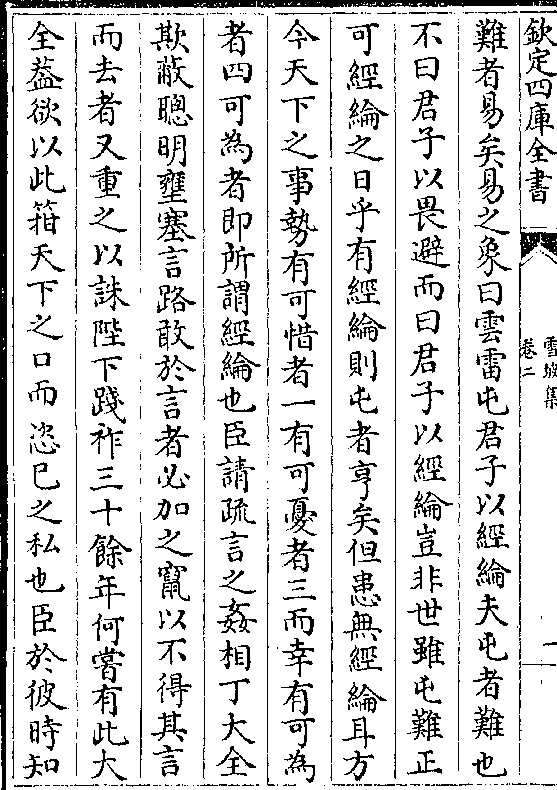 欽定四庫全書
雪坡集
卷二
一
難者易矣易之象曰雲雷屯君子以經綸夫屯者難也
不曰君子以畏避而曰君子以經綸豈非世雖屯難正
可經綸之日乎有經綸則屯者亨矣但患無經綸耳方
今天下之事勢有可惜者一有可憂者三而幸有可為
者四可為者即所謂經綸也臣請疏言之姦相丁大全
欺蔽聰明壅塞言路敢於言者必加之竄以不得其言
而去者又重之以誅陛下踐祚三十餘年何嘗有此大
全葢欲以此箝天下之口而恣已之私也臣於彼時知